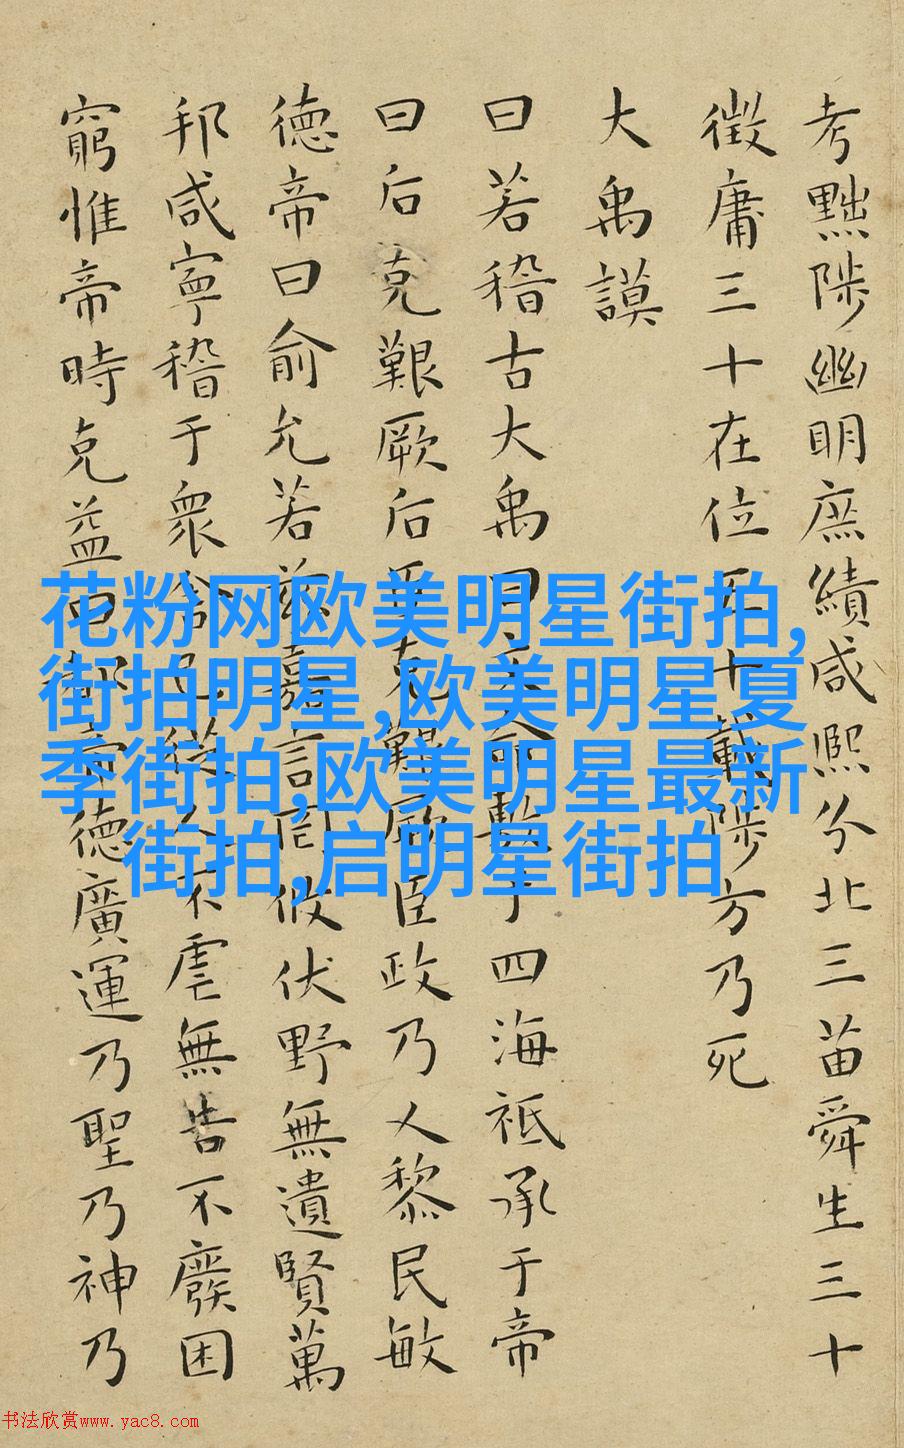 考黜陟幽明庶績咸熙分北三苗舜生三十
徵庸三十在位五十載陟方乃死
大禹謨
曰若稽古大禹曰文命敷于四海祗承于帝
曰后克艱厥后臣克艱厥臣政乃乂黎民敏
德帝曰俞允若茲嘉言罔攸伏野無遺賢萬
邦咸寧稽于眾舍己從人不虐無告不廢困
窮惟帝時克益曰都帝德廣運乃聖乃神乃
花粉网欧美明星街拍,
街拍明星,欧美明星夏
季街拍,欧美明星最新
街拍,启明星街拍
书法欣赏www.yac8.com